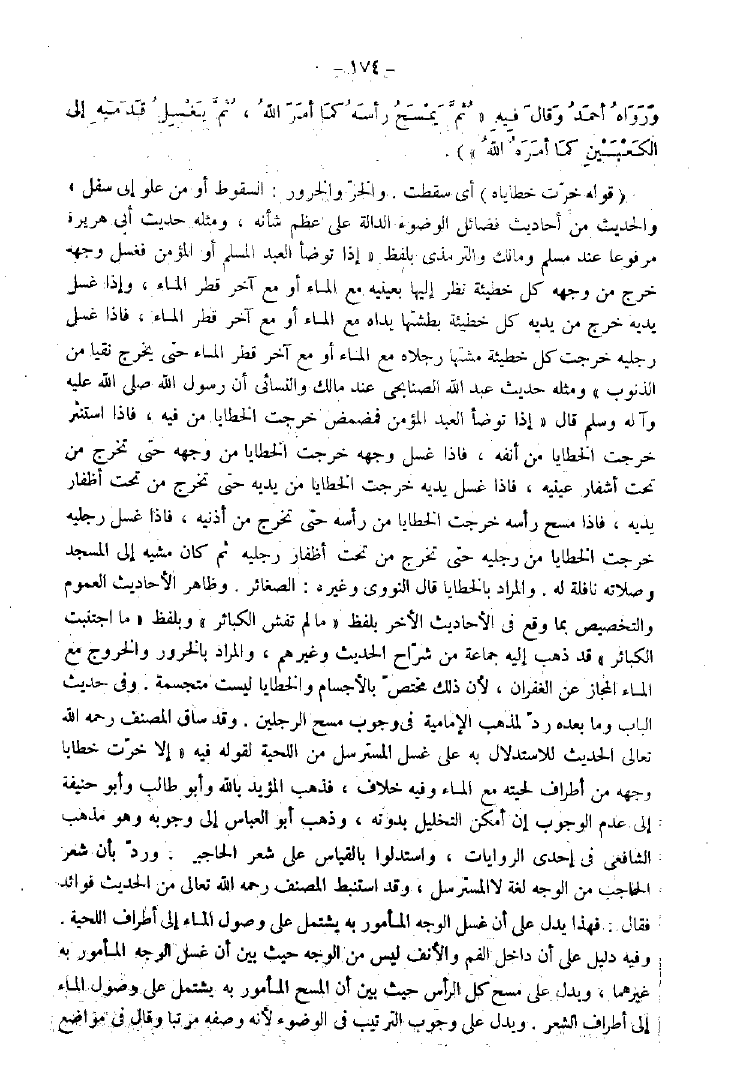 - ١٧٤ -
وَرَوَاهُ أَحمَدُ وَقَالَ فِيهِ « ثُمَّ يَمْسَحُ رَأسَهُ كمَا أمَرَ اللهُ ، ثُمَّ يَغْسِلُ قَدَمَيْهِ إلى
الكَعْبَيْنِ كمَا أمَرَهُ اللهُ » ) .
( قوله خرّت خطاياه ) أى سقطت . والخرّ والخرور : السقوط أو من علو إلى سفل ،
والحديث من أحاديث فضائل الوضوء الدالة على عظم شأنه ، ومثله حديث أبى هريرة
مرفوعا عند مسلم ومالك والترمذى بلفظ « إذا توضأ العبد المسلم أو المؤمن فغسل وجهه
خرج من وجهه كل خطيئة نظر إليها بعينيه مع المـاء أو مع آخر قطر المـاء ، وإذا غسل
يديه خرج من يديه كل خطيئة بطشتها يداه مع المـاء أو مع آخر قطر المـاء ، فاذا غسل
رجليه خرجت كل خطيئة مشتها رجلاه مع المـاء أو مع آخر قطر المـاء حتى يخرج نقيا من
الذنوب » ومثله حديث عبد الله الصنابحى عند مالك والنسائى أن رسول الله صلى الله عليه
وآله وسلم قال « إذا توضأ العبد المؤمن فمضمض خرجت الخطايا من فيه ، فاذا استنثر
خرجت الخطايا من أنفه ، فاذا غسل وجهه خرجت الخطايا من وجهه حتى تخرج من
تحت أشفار عينيه ، فاذا غسل يديه خرجت الخطايا من يديه حتى تخرج من تحت أظفار
يديه ، فاذا مسح رأسه خرجت الخطايا من رأسه حتى تخرج من أذنيه ، فاذا غسل رجليه
خرجت الخطايا من رجليه حتى تخرج من تحت أظفار رجليه ثم كان مشيه إلى المسجد
وصلاته نافلة له . والمراد بالخطايا قال النووى وغيره : الصغائر . وظاهر الأحاديث العموم
والتخصيص بما وقع فى الأحاديث الأخر بلفظ « مالم تغش الكبائر » وبلفظ « ما اجتنبت
الكبائر » قد ذهب إليه جماعة من شرّاح الحديث وغيرهم ، والمراد بالخرور والخروج مع
المـاء المجاز عن الغفران ، لأن ذلك مختصّ بالأجسام والخطايا ليست متجسمة . وفى حديث
الباب وما بعده ردّ لمذهب الإمامية فى وجوب مسح الرجلين . وقد ساق المصنف رحمه الله
تعالى الحديث للاستدلال به على غسل المسترسل من اللحية لقوله فيه « إلا خرّت خطايا
وجهه من أطراف لحيته مع المـاء وفيه خلاف ، فذهب المؤيد بالله وأبو طالب وأبو حنيفة
إلى عدم الوجوب إن أمكن التخليل بدونه ، وذهب أبو العباس إلى وجوبه وهو مذهب
الشافعى فى إحدى الروايات ، واستدلوا بالقياس على شعر الحاجب . وردّ بأن شعر
الحاجب من الوجه لغة لا المسترسل ، وقد استنبط المصنف رحمه الله تعالى من الحديث فوائد
فقال : فهذا يدل على أن غسل الوجه المـأمور به يشتمل على وصول المـاء إلى أطراف اللحية .
وفيه دليل على أن داخل الفم والأنف ليس من الوجه حيث بين أن غسل الوجه المـأمور به
غيرهما ، ويدل على مسح كل الرأس حيث بين أن المسح المـأمور به يشتمل على وصول المـاء
إلى أطراف الشعر . ويدل على وجوب الترتيب فى الوضوء لأنه وصفه مرتبا وقال فى مواضع